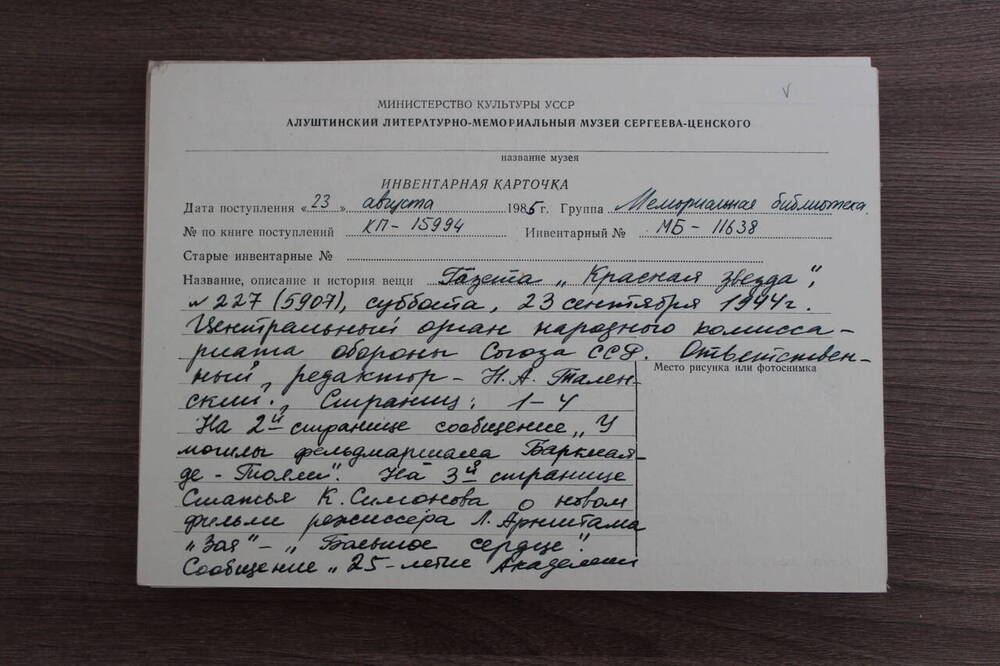 МИНИСТЕРСТВО КУЛЬТУРЫ УССР
АЛУШТИНСКИЙ ЛИТЕРАТУРНО-МЕМОРИАЛЬНЫЙ МУЗЕЙ СЕРГЕЕВА-ЦЕНСКОГО
название музея
ИНВЕНТАРНАЯ КАРТОЧКА
Дата поступления «23» августа 1985 г. Группа Мемориальная библиотека
№ по книге поступлений КП-15994 Инвентарный № МБ-11638
Старые инвентарные №
Название, описание и история вещи Газета „Красная звезда",
№ 227 (5907), суббота, 23 сентября 1944 г.
Центральный орган народного комисса-
риата обороны Союза ССР. Ответствен-
ный редактор - Н.А. Тален-
ский. Страниц: 1-4
Место рисунка или фотоснимка
На 2й странице сообщение „У
могилы фельдмаршала Барклая-
де-Толли". На 3й странице
Статья К. Симонова о новом
фильме режиссёра Л. Арнштама
„Зоя" - „Большое сердце".
Сообщение „25-летие Академии